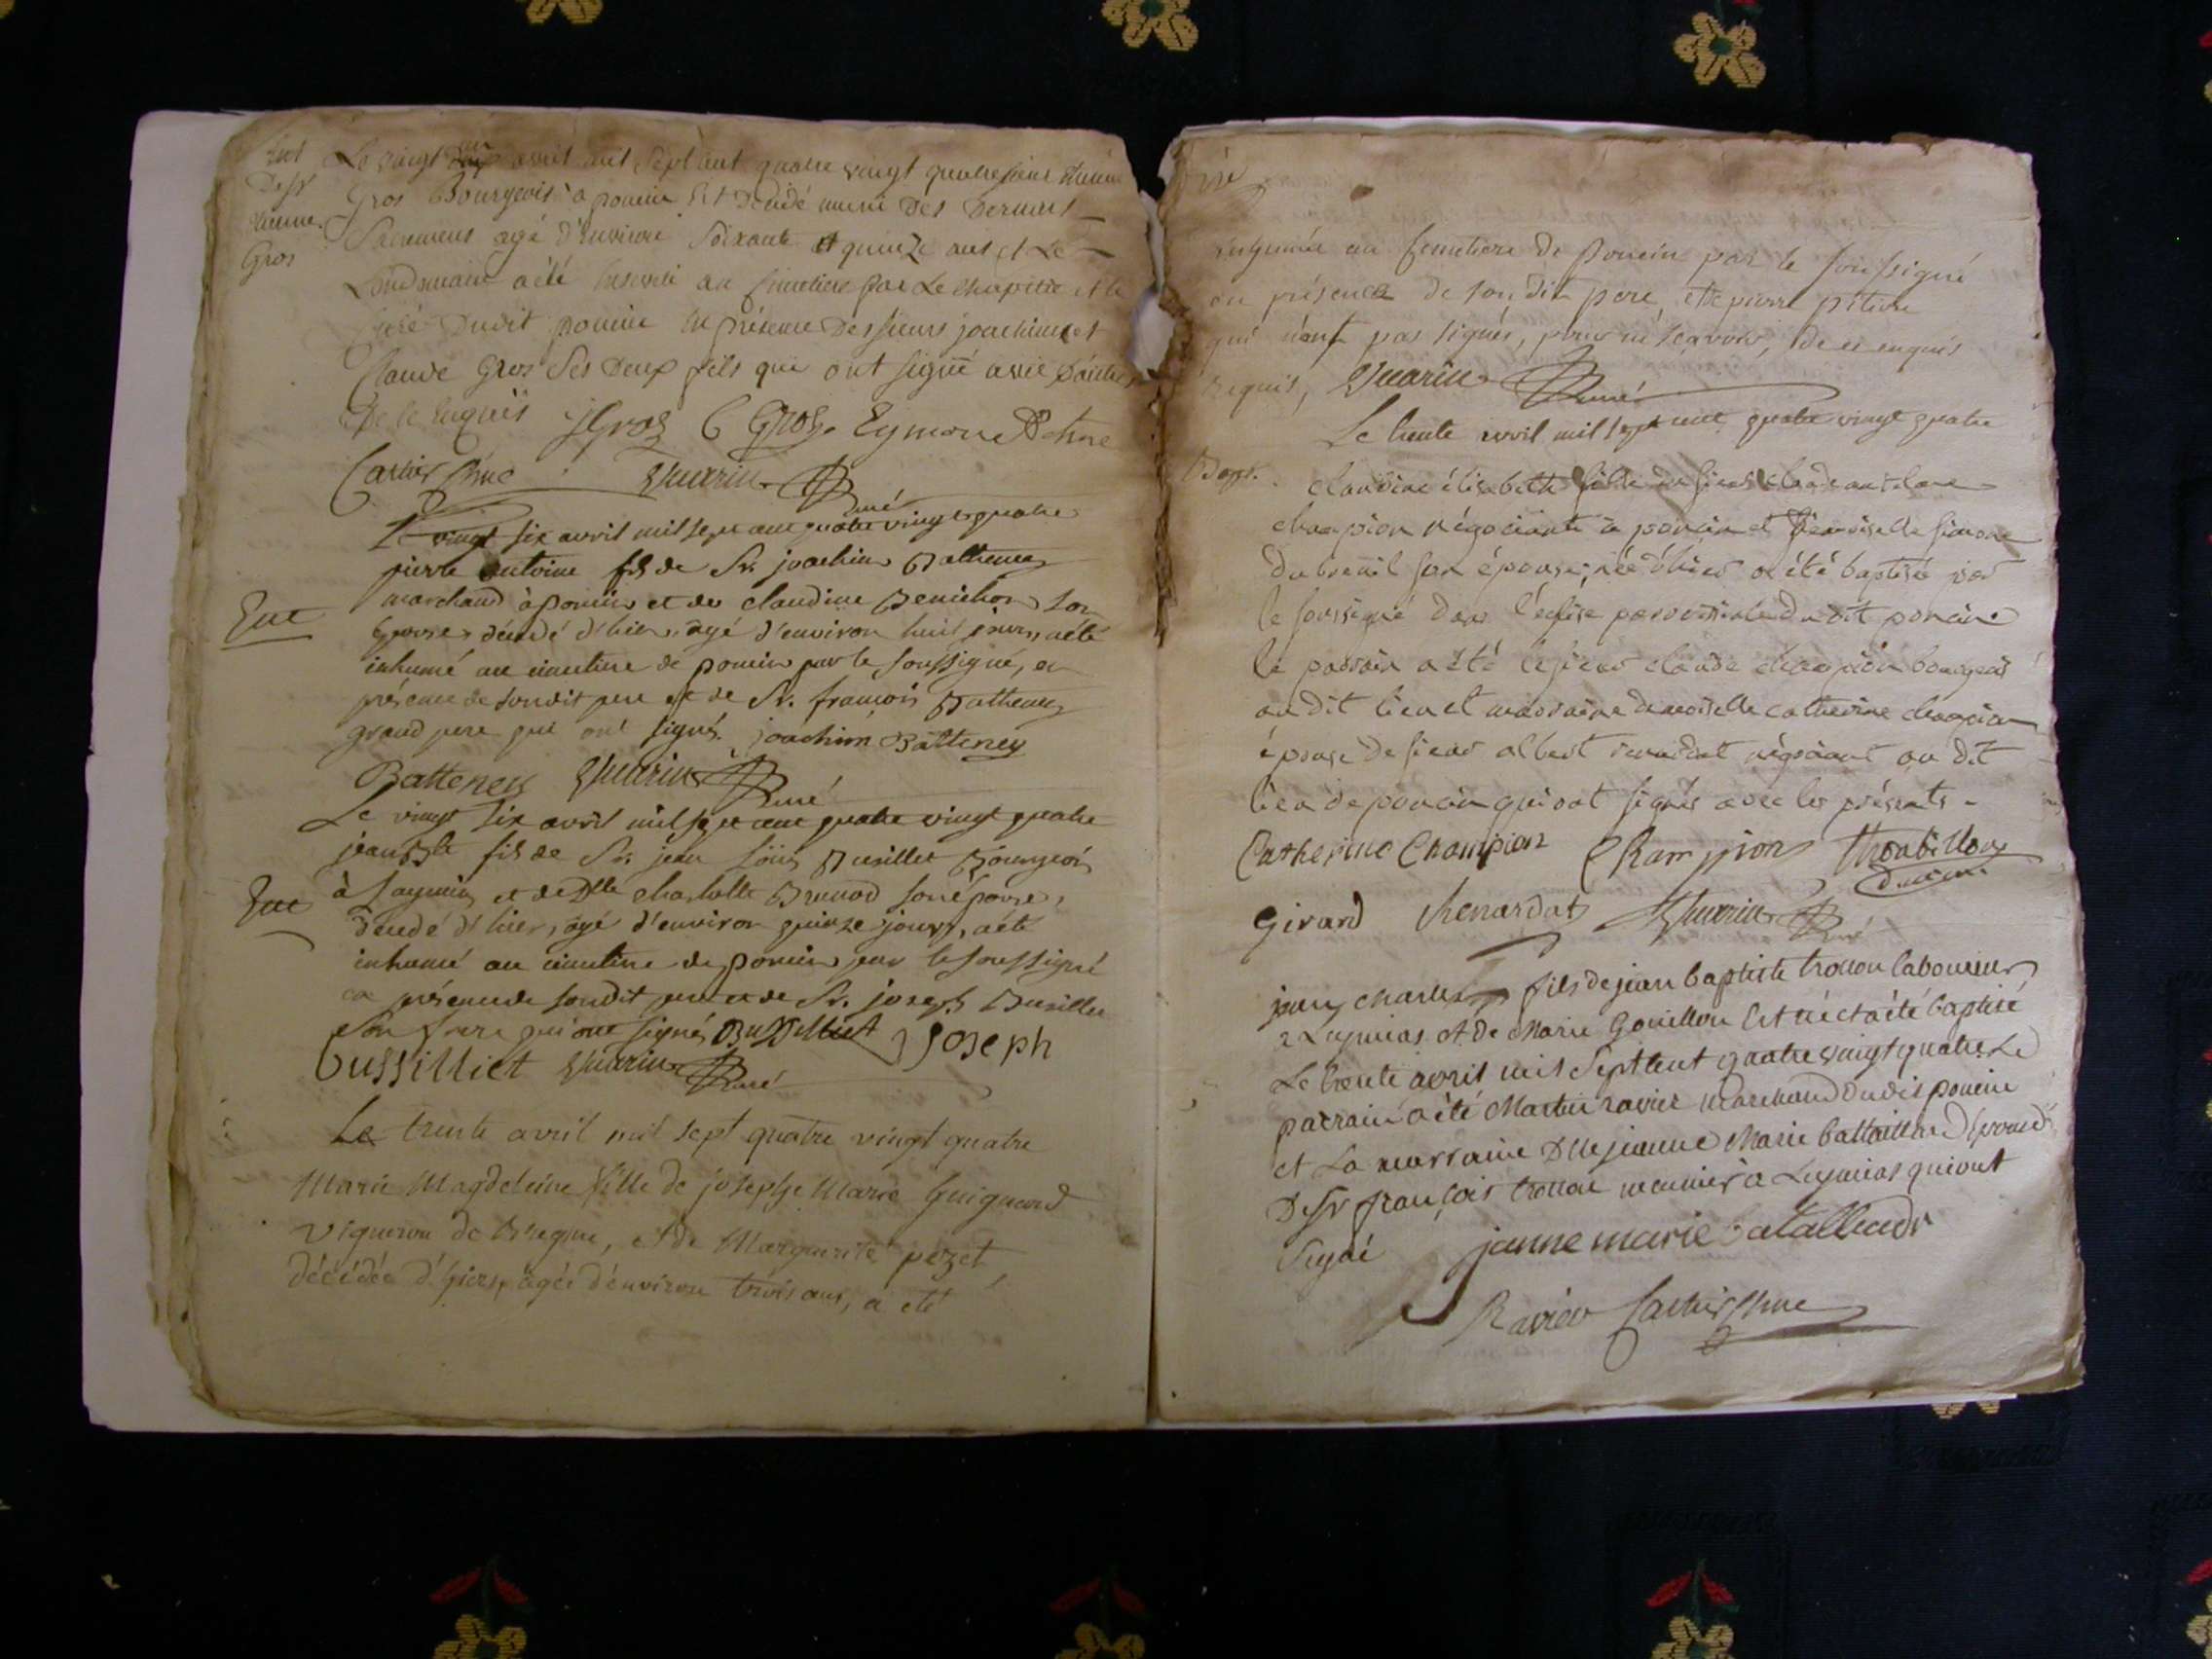 Ent
De Sr
Etienne
Gros
Le vingt avril mil sept cent quatre vingt quatre sieur Etienne
Gros Bourgeois a poncin Est Decidé muni Des Derniers
Sacremens agé d'Environ Soixante et quinze ans et Le
Lendemain a été inseveli au Cimetiere par Le chapitre et le
curé Dudit poncin En présence Des sieurs joachim et
Claude Gros Ses Deux fils qui ont signé avec
De ce Enquis JGros C Gros Eymon Pbtre
Quarin Curé
Le vingt six avril mil sept cent quatre vingt quatre
pierre antoine fils de Sr. joachim Battheney
marchand à poncin et de claudine Benichon son
Ent
Epouse, décédé d'hier, agé d'environ huit jours, a été
inhumé au cimetiere de poncin par le soussigné, en
présence de son dit pere et de Sr. françois Battheney
grand pere qui ont signés. joachim Batteney
Batteney Quarin Curé
Le vingt six avril mil sept cent quatre vingt quatre
jean Bte fils de Sr. jean Loüis Bussillet Bourgeois
à Leymia et de Dlle charlotte Brunod son épouse,
Ent
décédé d'hier, agé d'environ quinze jours, a été
inhumé au cimetiere de poncin par le soussigné
en présence de son dit pere et de Sr. joseph Bussillet
son frere qui ont signés Bussilliet joseph
bussilliet Quarin Curé
Le trente avril mil sept quatre vingt quatre
Marie Magdeleine fille de joseph Marie Guignard
vigneron de et de Marguerite pezet
décédée d'hiers, agée d'environ trois ans, a eté
inhumée au Cemetiere de Poncin par le soussigné
en présence de son dit pere, et de pierre
qui n'ont pas signés, pour ne sçavoir, de ce enquis
requis, Quarin Curé
Le trente avril mil sept cent quatre vingt quatre
Bapt.
claudine élisabeth fille du sieur claude antelme
champion négociant à poncin et Demoiselle simone
Dubreuil son épouse, née d'hier a été baptisée par
le soussigné dans l'église paroissiale du dit poncin
le parrain a été le sieur claude champion bourgeois
au dit lieu et marraine demoiselle catherine champion
épouse de sieur albert renardat négociant au dit
lieu de poncin qui ont signés avec les présents.
Catherine Champion Champion Thoubillon
Girard Renardat Quarin Curé
jean charles fils de jean baptiste trollion laboureur
a Leymias et de Marie Gouillon Est né et a été baptisé
Le trente avril mil Sept cent quatre vingt quatre Le
parrain a été Martin ravier marchand dudit poncin
et La marraine Dlle jeanne Marie battaillard
De Sr françois meunier a Leymias qui ont
Signé janne marie batalliardr
Ravier